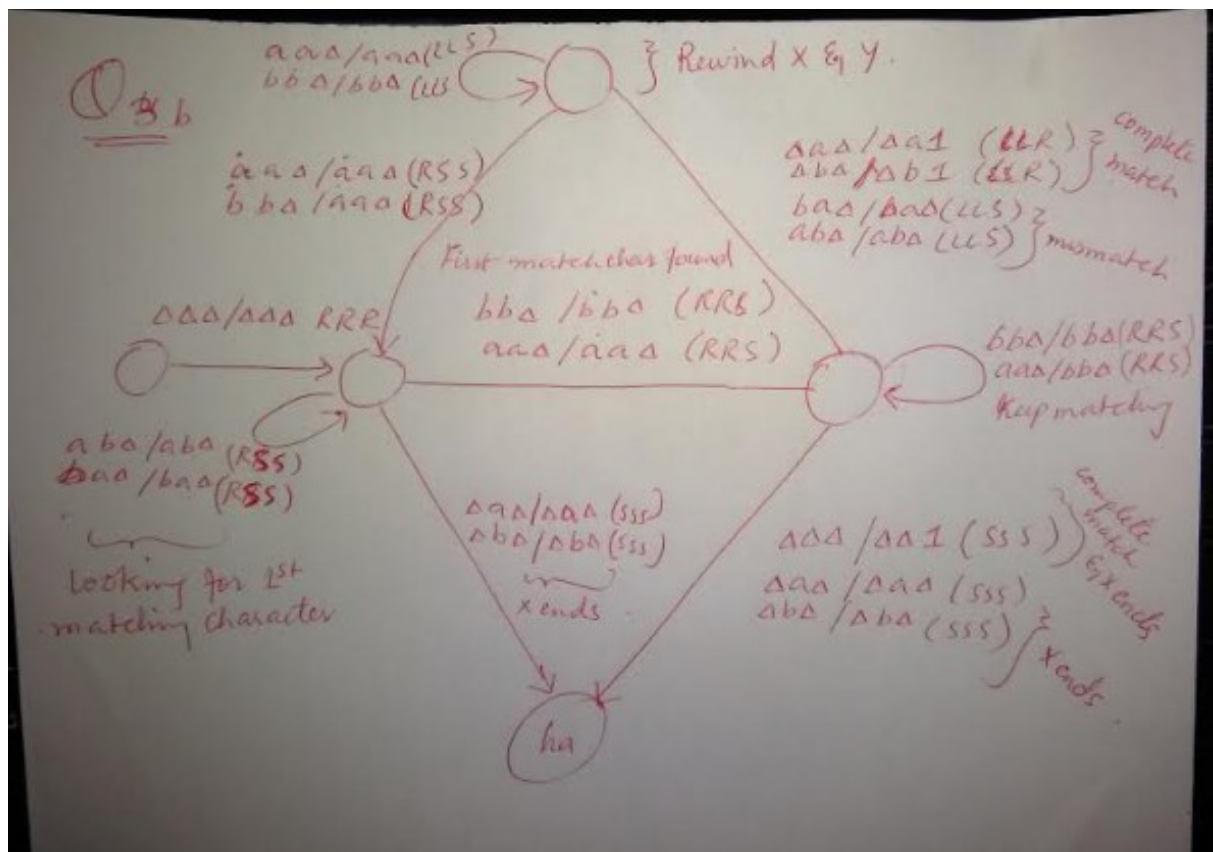 Q 3 b
aaΔ/aaΔ(LLS)
bbΔ/bbΔ(LLS
} Rewind X & Y.
ȧaΔ/ȧaΔ(RSS)
ḃbΔ/ȧaΔ(RSS)
ΔaΔ/Δa1 (LLR)
ΔbΔ/Δb1 (LLR)
} complete
match
baΔ/baΔ(LLS)
abΔ/abΔ(LLS)
} mismatch
First match char found
bbΔ/ḃbΔ (RRS)
aaΔ/ȧaΔ (RRS)
ΔΔΔ/ΔΔΔ RRR
bbΔ/bbΔ(RRS)
aaΔ/bbΔ(RRS)
Keep matching
abΔ/abΔ(RSS)
baΔ/baΔ(RSS)
Looking for 1st
matching character
ΔaΔ/ΔaΔ(SSS)
ΔbΔ/ΔbΔ(SSS)
X ends
ΔΔΔ/ΔΔ1 (SSS)
} complete
match
& X ends
ΔaΔ/ΔaΔ(SSS)
ΔbΔ/ΔbΔ(SSS)
} X ends
ha